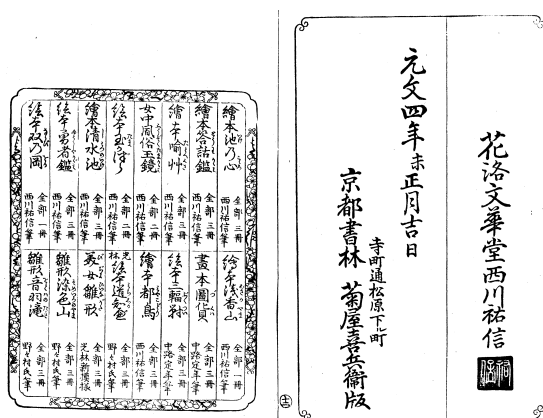 花洛文華堂西川祐信
祐信
元文四年未正月吉日
寺町通松原下ル町
京都書林 菊屋喜兵衞版
繪本池乃心 全部三冊 西川祐信筆
繪本答話鑑 全部三冊 西川祐信筆
繪本喻艸 全部三冊 西川祐信筆
女中風俗玉鏡 全部二冊 西川祐信筆
絵本玉かつら 全部二冊 西川祐信筆
繪本清水池 全部三冊 西川祐信筆
絵本勇者鑑 全部三冊 西川祐信筆
絵本双乃岡 全部三冊 西川祐信筆
絵本浅香山 全部一冊 西川祐信筆
畫本圖貨 全部三冊 中路定年筆
絵本三輻対 全部三冊 中路定年筆
繪本都鳥 全部三冊 西川祐信筆
光林絵本道 全部三冊 野々村氏筆
美女雛形 全部三冊 光林新模様
雛形染色山 全部三冊 野々村氏筆
雛形音羽滝 全部三冊 野々村氏筆